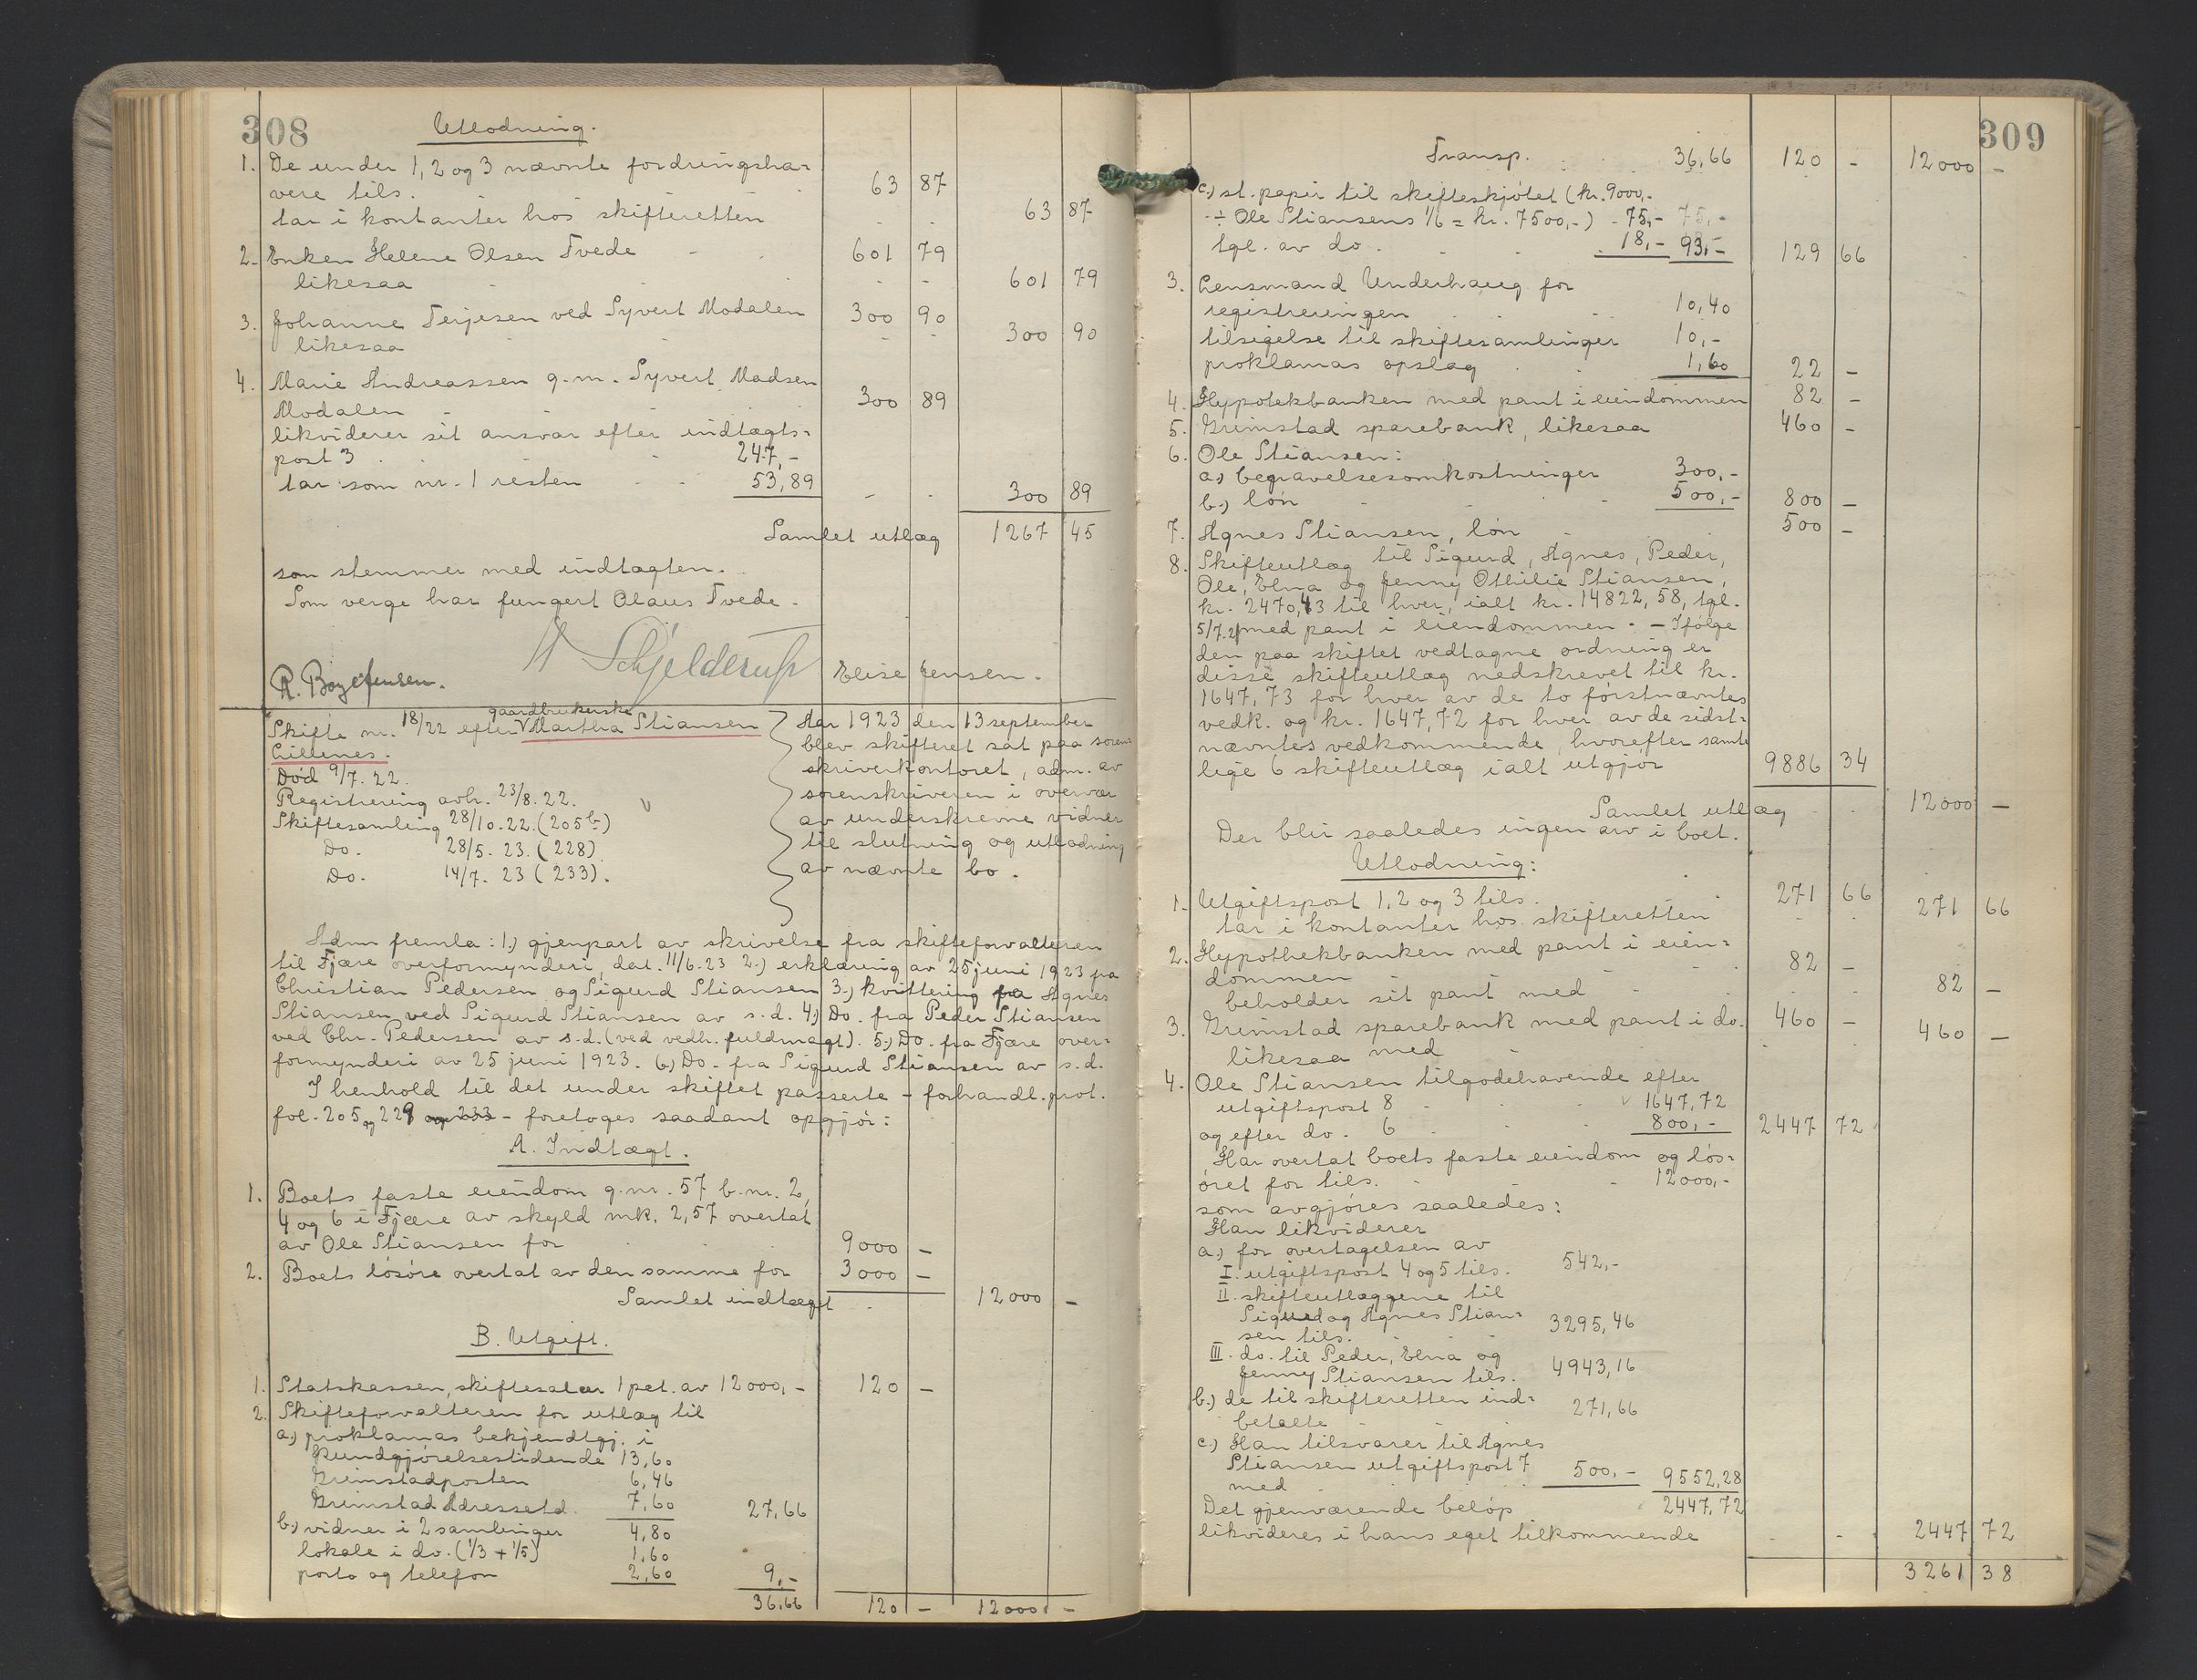 308
Utlodning.
1. De under 1, 2 og 3 nævnte fordringsha-
vere tils. 63 87
tar i kontanter hos skifteretten - - 63 87
2. Enken Helene Olsen Tvede - 601 79
likesaa - - 601 79
3. Johanne Terjesen ved Syvert Modalen 300 90
likesaa - - 300 90
4. Marie Andreassen g.m. Syvert Madsen
Modalen - 300 89
likviderer sit ansvar efter indtægts-
post 3 247,-
tar som nr. 1 resten 53,89 - - 300 89
Samlet utlæg 1267 45
som stemmer med indtægten.
Som verge har fungert Olaus Tvede.
Schjelderup
R. Boye Jensen. Elise Jensen.
Skifte nr. 18/22 efter gaardbrukerske Martha Stiansen
Lillenes.
Død 9/7. 22.
Registrering avh. 23/8. 22.
Skiftesamling 28/10.22. (205b)
Do. 28/5. 23. (228)
Do. 14/7. 23 (233).
Aar 1923 den 13 september
blev skifteret sat paa soren-
skriverkontoret, adm. av
sorenskriveren i overvær
av underskrevne vidner
til slutning og utlodning
av nævnte bo.
Adm fremla: 1.) gjenpart av skrivelse fra skifteforvalteren
til Fjære overformynderi, dat. 11/6.23 2.) erklæring av 25 juni 1923 fra
Christian Pedersen og Sigurd Stiansen 3.) kvittering fra Agnes
Stiansen ved Sigurd Stiansen av s.d. 4.) Do. fra Peder Stiansen
ved Chr. Pedersen av s.d. (ved vedh. fuldmagt). 5.) Do. fra Fjære over-
formynderi av 25 juni 1923. 6.) Do. fra Sigurd Stiansen av s.d.
I henhold til det under skiftet passerte - forhandl.prot.
fol. 205 og 229 og 233 - foretoges saadant opgjør:
A. Indtægt.
1. Boets faste eiendom g.nr. 57 b.nr. 2,
4 og 6 i Fjære av skyld mk. 2,57 overtat
av Ole Stiansen for 9000 -
2. Boets løsøre overtat av den samme for 3000 -
Samlet indtægt 12000 -
B. Utgift.
1. Statskassen, skiftesalær 1 pct. av 12000,- 120 -
2. Skifteforvalteren for utlæg til
a.) proklamas bekjendtgj. i
Kundgjørelsestidende 13,60
Grimstadposten 6,46
Grimstad Adressetd. 7,60 27,66
b.) vidner i 2 samlinger 4,80
lokale i do. (1/3 + 1/5) 1,60
porto og telefon 2,60 9,-
36,66 120 - 12000 -
309
Transp. 36,66 120 - 12000 -
c.) st. papir til skifteskjøtet (kr. 9000,-
÷ Ole Stiansens 1/6 = kr. 7500,-) 75,- 75,-
tgl. av do. 18,- 93,- 129 66
3. Lensmand Underhaug for
registreringen 10,40
tilsigelse til skiftesamlinger 10,-
proklamas opslag 1,60 22 -
4. Hypotekbanken med pant i eiendommen 82 -
5. Grimstad sparebank, likesaa 460 -
6. Ole Stiansen:
a.) begravelsesomkostninger 300,-
b.) løn 500,- 800 -
7. Agnes Stiansen, løn 500 -
8. Skifteutlæg til Sigurd, Agnes, Peder,
Ole, Elna og Jenny Othilie Stiansen,
kr. 2470,43 til hver, ialt kr. 14822,58, tgl.
5/7.21 med pant i eiendommen. - Ifølge
den paa skiftet vedtagne ordning er
disse skifteutlæg nedskrevet til kr.
1647,73 for hver av de to førstnævntes
vedk. og kr. 1647,72 for hver av de sidst-
nævntes vedkommende, hvorefter samt-
lige 6 skifteutlæg ialt utgjør 9886 34
Samlet utlæg 12000 -
Der blir saaledes ingen arv i boet.
Utlodning:
1. Utgiftspost 1, 2 og 3 tils. 271 66
tar i kontanter hos skifteretten - - 271 66
2. Hypothekbanken med pant i eien-
dommen 82 -
beholder sit pant med 82 -
3. Grimstad sparebank med pant i do. 460 -
likesaa med 460 -
4. Ole Stiansen tilgodehavende efter
utgiftspost 8 1647,72
og efter do. 6 800,- 2447 72
Har overtat boets faste eiendom og løs-
øret for tils. 12000,-
som avgjøres saaledes:
Han likviderer
a.) for overtagelsen av
I. utgiftspost 4 og 5 tils. 542,-
II. skifteutlæggene til
Sigurd og Agnes Stian-
sen tils. 3295,46
III. do. til Peder, Elna og
Jenny Stiansen tils. 4943,16
b.) de til skifteretten ind-
betalte 271,66
c.) Han tilsvarer til Agnes
Stiansen utgiftspost 7
med 500,- 9552,28
Det gjenværende beløp 2447,72
likvideres i hans eget tilkommende - - 2447 72
3261 38